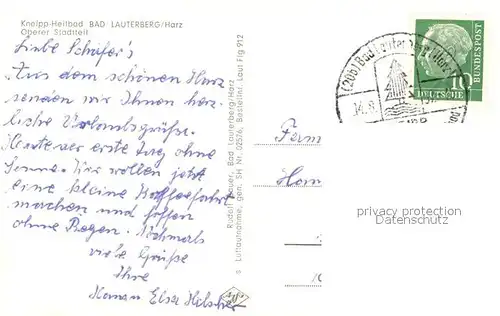 Kneipp-Heilbad BAD LAUTERBERG/Harz
Oberer Stadtteil
Liebe Schäfer's
Aus dem schönen Harz
senden wir Ihnen herz-
liche Urlaubsgrüße.
Heute der erste Tag ohne
Sonne. Wir wollen jetzt
eine kleine Kaffeefahrt
machen und hoffen
ohne Regen. Nochmals
viele Grüße
Ihre
Elsa
Rudolf Bad Lauterberg/Harz
© Luftaufnahme, gen. SH Nr. 02576, Bestellnr. Laut Flg 912
(20b) Bad Lauterberg
14.8.
10
DEUTSCHE
BUNDESPOST
Fam
privacy protection
Datenschutz